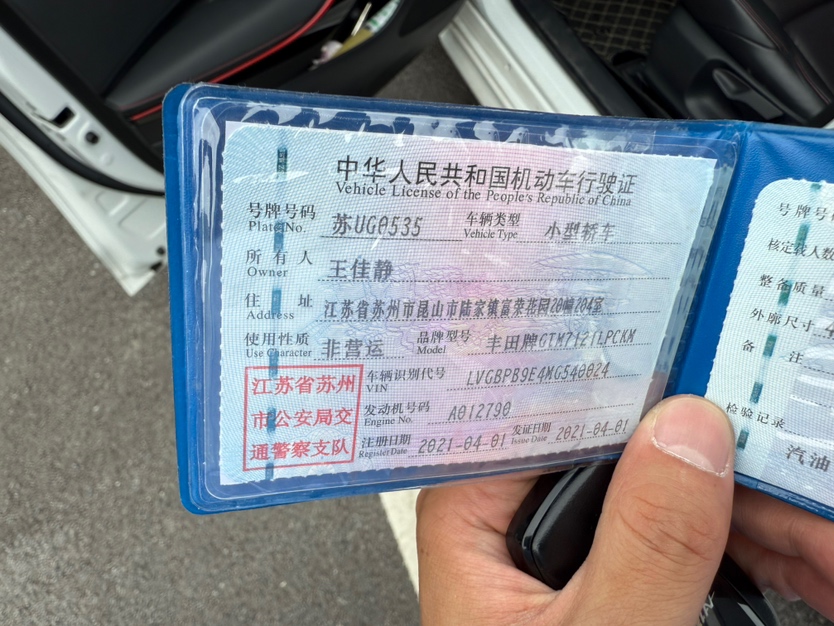 中华人民共和国机动车行驶证
Vehicle License of the People's Republic of China
号牌号码 苏UG0535 车辆类型 小型轿车
Plate No. Vehicle Type
所有人 王佳静
Owner
住址 江苏省苏州市昆山市陆家镇富荣花园20幢204室
Address
使用性质 非营运 品牌型号 丰田牌GTM7121LPCKM
Use Character Model
江苏省苏州
市公安局交
通警察支队
车辆识别代号 LVGBPB9E4MG540024
VIN
发动机号码 A012790
Engine No.
注册日期 2021-04-01 发证日期 2021-04-01
Register Date Issue Date
号牌号
核定载人数
整备质量
外廓尺寸
备注
检验记录
汽油